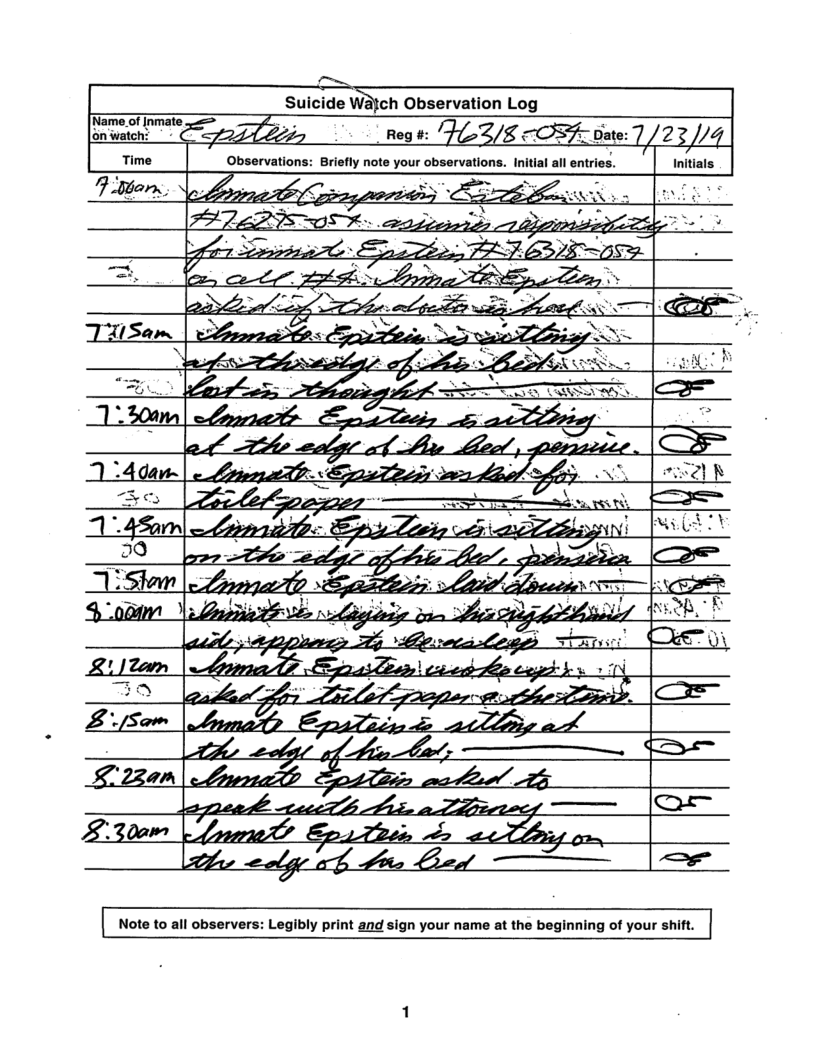 Suicide Watch Observation Log
Name of Inmate on watch: Epstein Reg #: 76318-054 Date: 7/23/19
Time Observations: Briefly note your observations. Initial all entries. Initials
7:00am Inmate Companion Esteban
#76275-054 assumes responsibility
for inmate Epstein #76318-054
on cell #4. Inmate Epstein
asked if the doctor is here
7:15am Inmate Epstein is sitting
at the edge of his bed
lost in thought
7:30am Inmate Epstein is sitting
at the edge of his bed, pensive.
7:40am Inmate Epstein asked for
toilet-paper
7:45am Inmate Epstein is sitting
on the edge of his bed, pensive
7:51am Inmate Epstein laid down
8:00am Inmate is laying on his right hand
side, appears to be asleep
8:12am Inmate Epstein woke up &
asked for toilet-paper @ the time.
8:15am Inmate Epstein is sitting at
the edge of his bed;
8:23am Inmate Epstein asked to
speak with his attorney
8:30am Inmate Epstein is sitting on
the edge of his bed
Note to all observers: Legibly print and sign your name at the beginning of your shift.
1